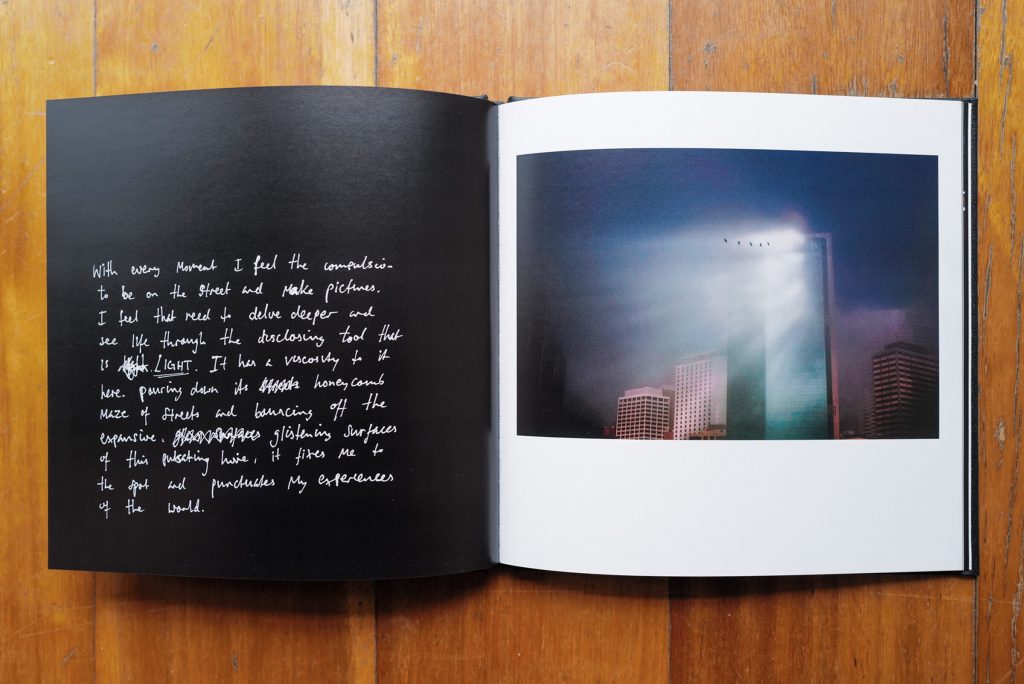 With every Moment I feel the compulsion
to be on the street and Make pictures.
I feel that need to delve deeper and
see life through the disclosing tool that
is LIGHT. It has a viscosity to it
here. pouring down its honeycomb
Maze of streets and bouncing off the
expansive. glistening surfaces
of this pulsating hive, it fixes Me to
the spot and punctuates My experiences
of the world.